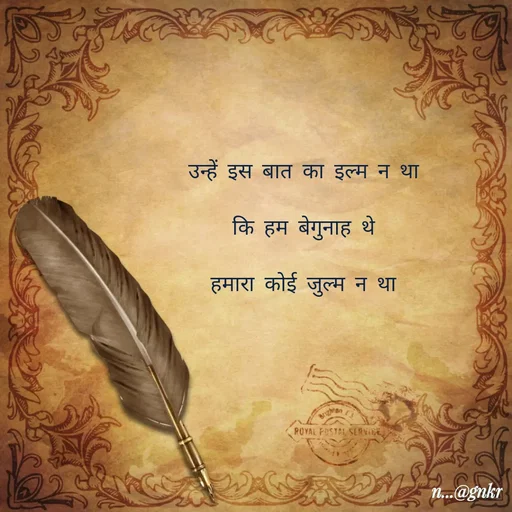 उन्हें इस बात का इल्म न था
कि हम बेगुनाह थे
हमारा कोई जुल्म न था
ROYAL POSTAL SERVICE
n...@gnkr